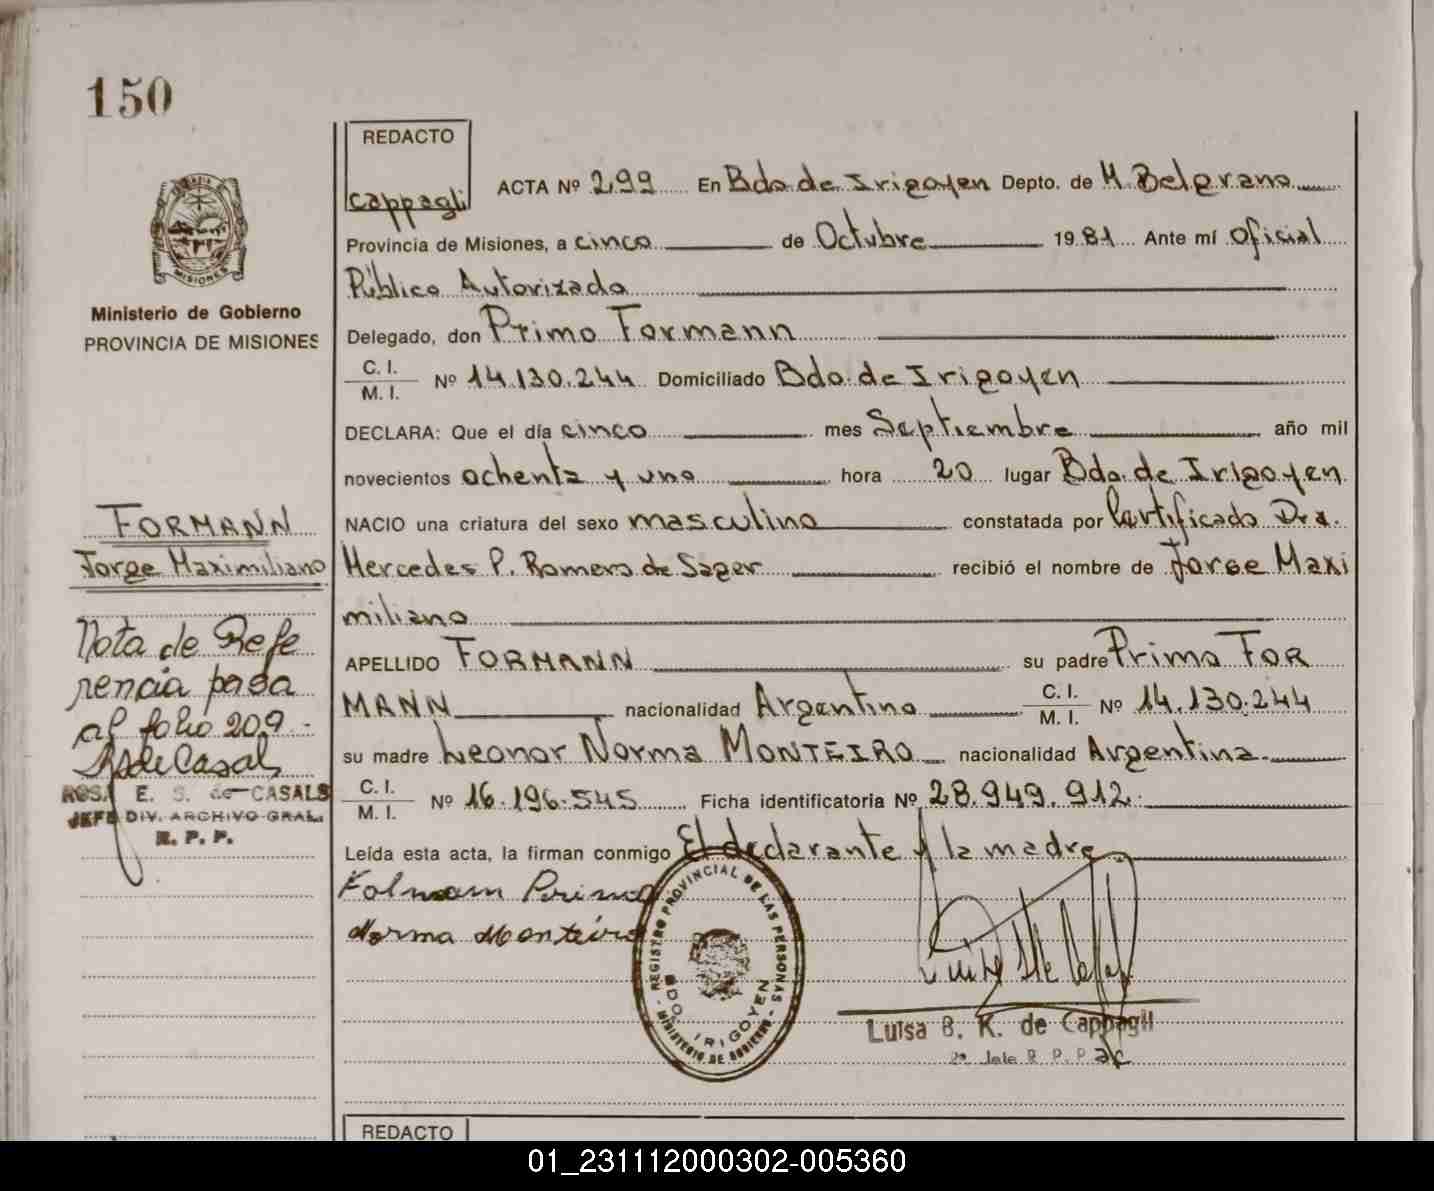 150
REDACTO
cappagli
ACTA Nº 299 En Bdo. de Irigoyen Depto. de M. Belgrano
Provincia de Misiones, a cinco de Octubre 1981 Ante mí Oficial
Público Autorizado
Delegado, don Primo Formann
C. I.
M. I. Nº 14.130.244 Domiciliado Bdo. de Irigoyen
DECLARA: Que el día cinco mes Septiembre año mil
novecientos ochenta y uno hora 20 lugar Bdo. de Irigoyen
NACIO una criatura del sexo masculino constatada por Certificado Dra.
Mercedes P. Romero de Sager recibió el nombre de Jorge Maxi
miliano
APELLIDO FORMANN su padre Primo FOR
MANN nacionalidad Argentino C. I. M. I. Nº 14.130.244
su madre Leonor Norma MONTEIRO nacionalidad Argentina
C. I.
M. I. Nº 16.196.545 Ficha identificatoria Nº 28.949.912
Leída esta acta, la firman conmigo El declarante y la madre
Folmam Primo
Norma Monteiro
REGISTRO PROVINCIAL DE LAS PERSONAS
BDO. IRIGOYEN
MINISTERIO DE GOBIERNO
Luisa B. K. de Cappagli
REDACTO
PROVINCIA DE
MISIONES
Ministerio de Gobierno
PROVINCIA DE MISIONES
FORMANN
Jorge Maximiliano
Nota de Refe
rencia pasa
al folio 209
RSdeCasals
ROSA E. S. de CASALS
JEFE DIV. ARCHIVO GRAL.
R. P. P.
01_231112000302-005360